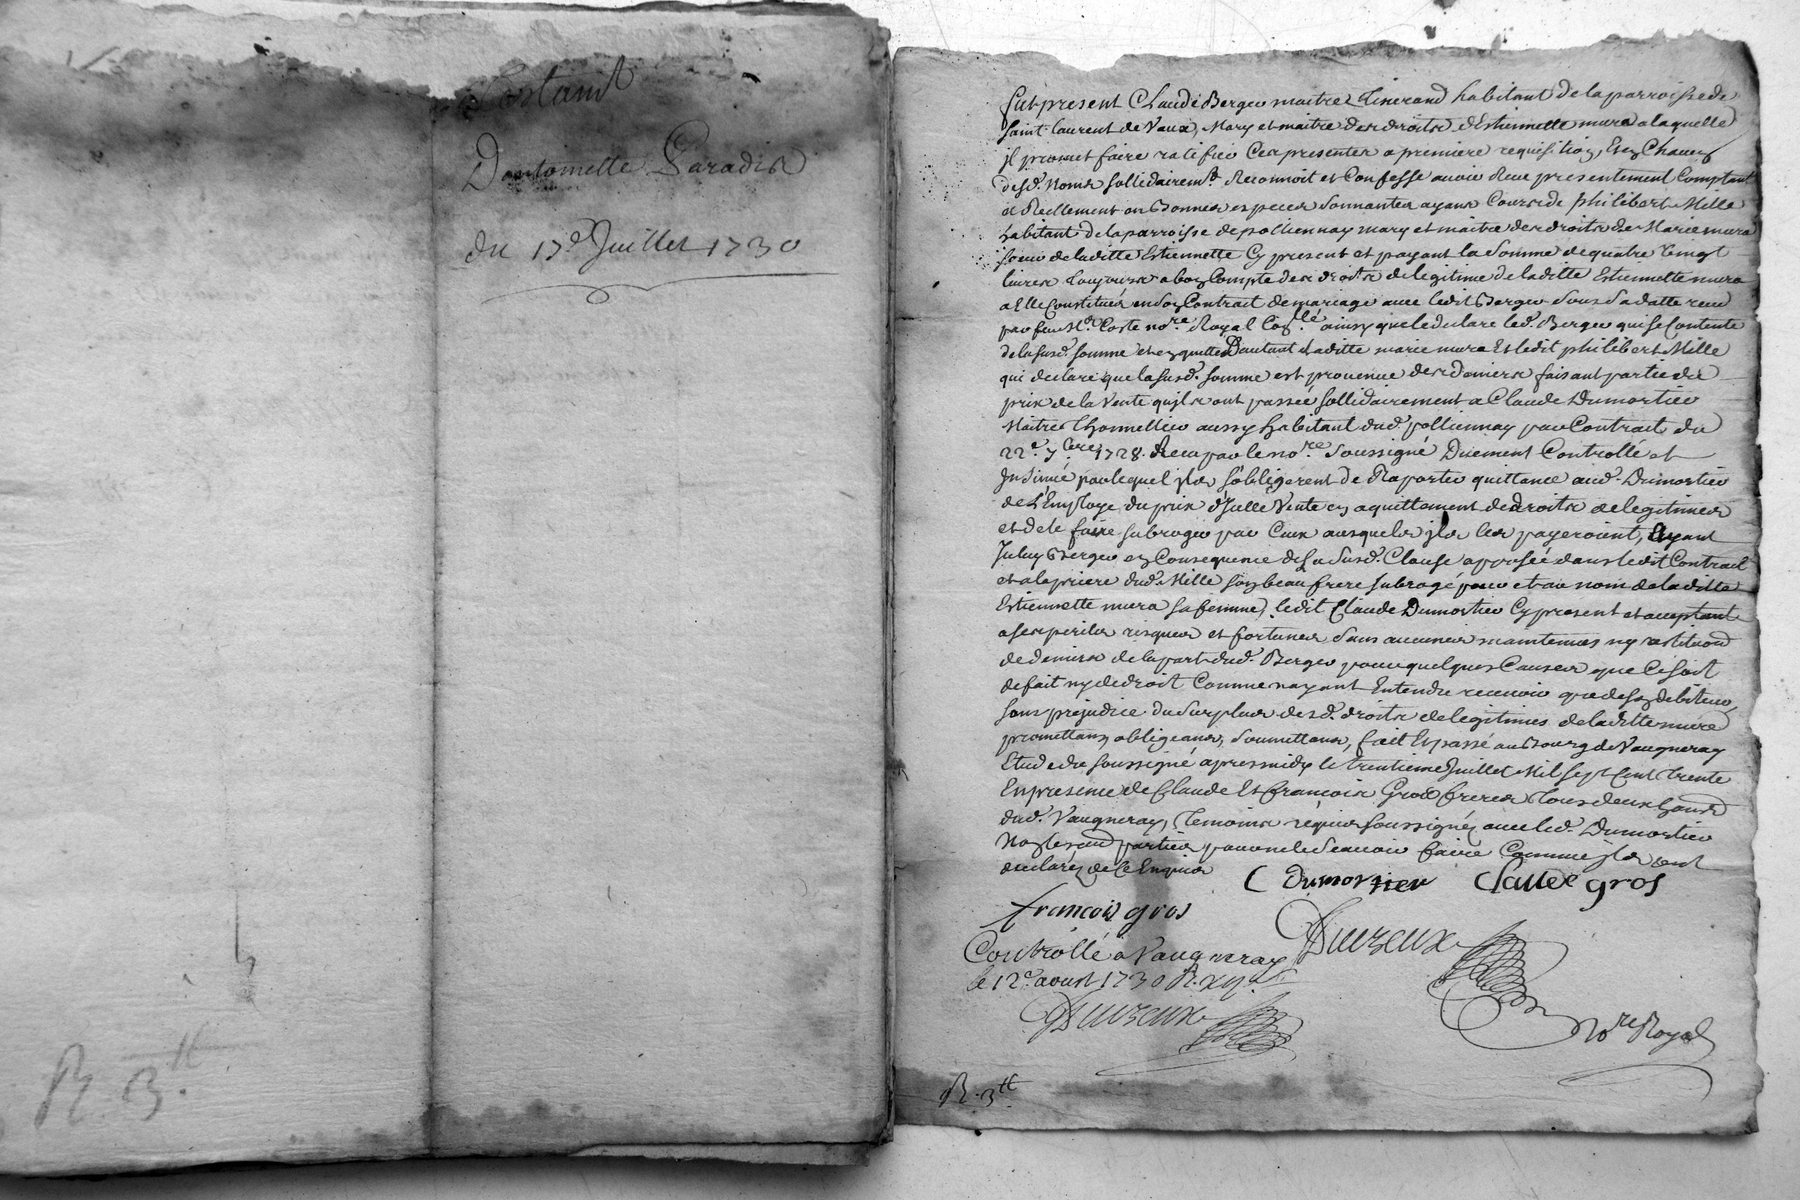 Testamt
Dantoinette Paradis
du 17e Juillet 1730
R. 3tt.
fut present Claude Berger maitre Tisserand habitant de la parroisse de
saint laurent de Vaux, Mary et maitre des droits d'Estiennette mura a laquelle
jl promet faire ratifier Ces presentes a premiere requisition, Et en Chacun
desd. noms sollidairemt. Reconnoit et Confesse avoir Reçu presentement Comptant
et Reellement en Bonnes especes sonnantes ayant Cours de philibert Mille
habitant de la parroisse de pollienay mary et maitre des droits de Marie mura
soeur de laditte Estiennette Cy present et payant la Somme de quatre Vingt
livres toujours a bon Compte des droits de legitime de laditte Estiennette mura
a Elle Constitués en son Contrat de mariage avec ledit Berger Sous Sa datte reçu
par feu Mr. Coste nore. Royal ainsy que le declare led. Berger qui se Contente
de la susd. somme et en quitte D'autant laditte marie mura Et ledit philibert Mille
qui declare que la susd. somme est provenue des deniers faisant partie du
prix de la Vente qu'jls ont passée sollidairement a Claude Dumortier
Maitre thonnellier aussy habitant dud. pollienay par Contrait du
22e. 7bre 1728. Reçu par le nore. Soussigné Duement Controllé et
Insinué par lequel jls s'obligerent de Raporter quittance aud. Dumortier
de L'Employ du prix d'Jcelle Vente en aquittement de droits de legitimes
et de le faire subroger par Ceux ausquels jls les payeroient, Ayant
Jceluy Berger en Consequence de la Susd. Clause aposée dans ledit Contrait
et a la priere dud. Mille son beau frere subrogé pour et au nom de laditte
Estiennette mura sa femme, ledit Claude Dumortier Cy present et acceptant
a ses perils risques et fortunes Sans aucunes maintenues ny restitution
de deniers de la part dud. Berger pour quelques Causes que Ce soit
de fait ny de droit Comme nayant Entendu recevoir que de son debiteur,
sans prejudice du Surplus desd. droits de legitimes de laditte mura
promettans, obligeans, Soumettans, fait Et passé au Bourg de Vaugneray
Etude du soussigné apres midy le trentieme Juillet Mil sept Cent trente
En presence de Claude Et francois Gros freres tous deux
dud. Vaugneray, temoins requis soussignéz avec led. Dumortier
Non les autres parties pour ne le Scavoir faire Comme jls ont
declaréz de Ce Enquis
C Dumortier Claude gros
francois gros
Controllé a Vaugneray
le 12e. aoust 1730 R. xy s.
Duvreux
Duvreux
Nore Royal
R. 3tt.